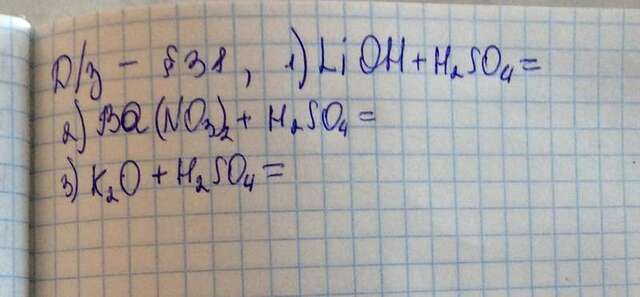 D/з - §38, 1) LiOH + H₂SO₄ =
2) Ba(NO₃)₂ + H₂SO₄ =
3) K₂O + H₂SO₄ =